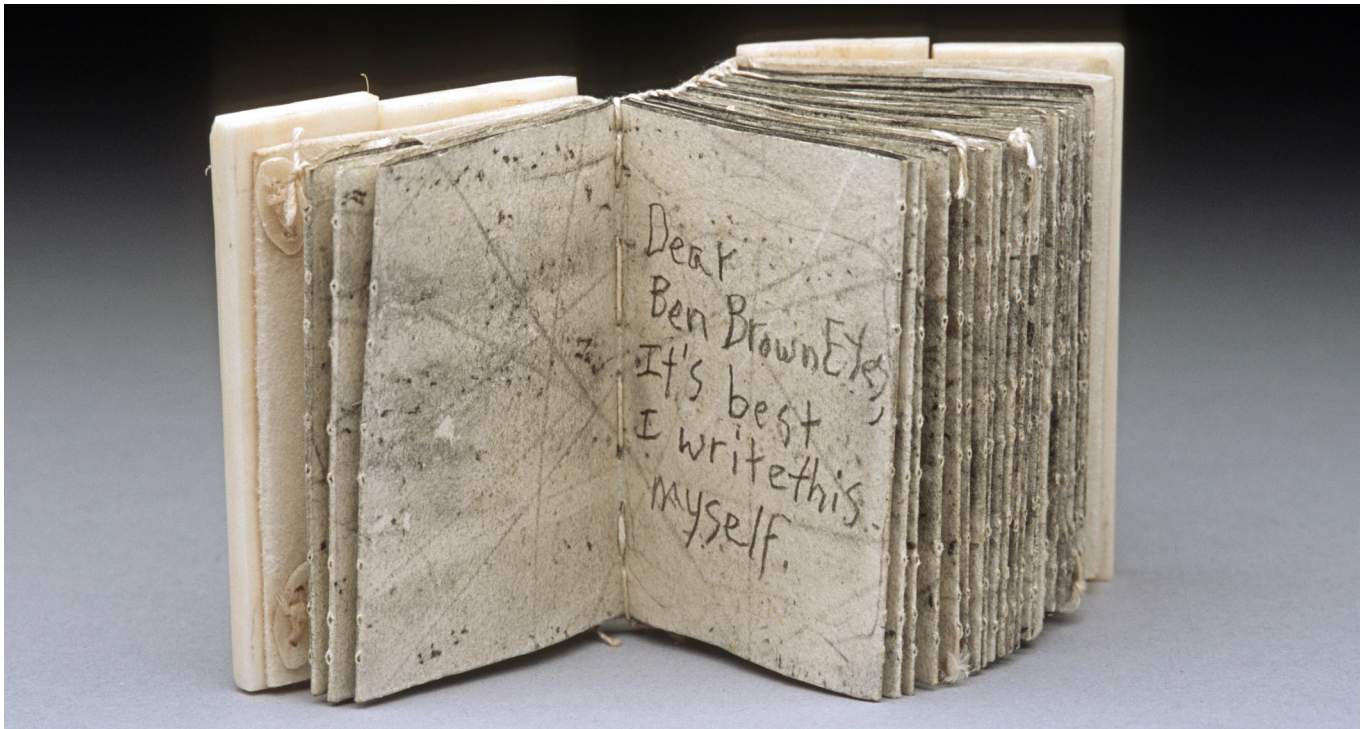 Dear
Ben BrownEyes,
It's best
I writethis
myself.